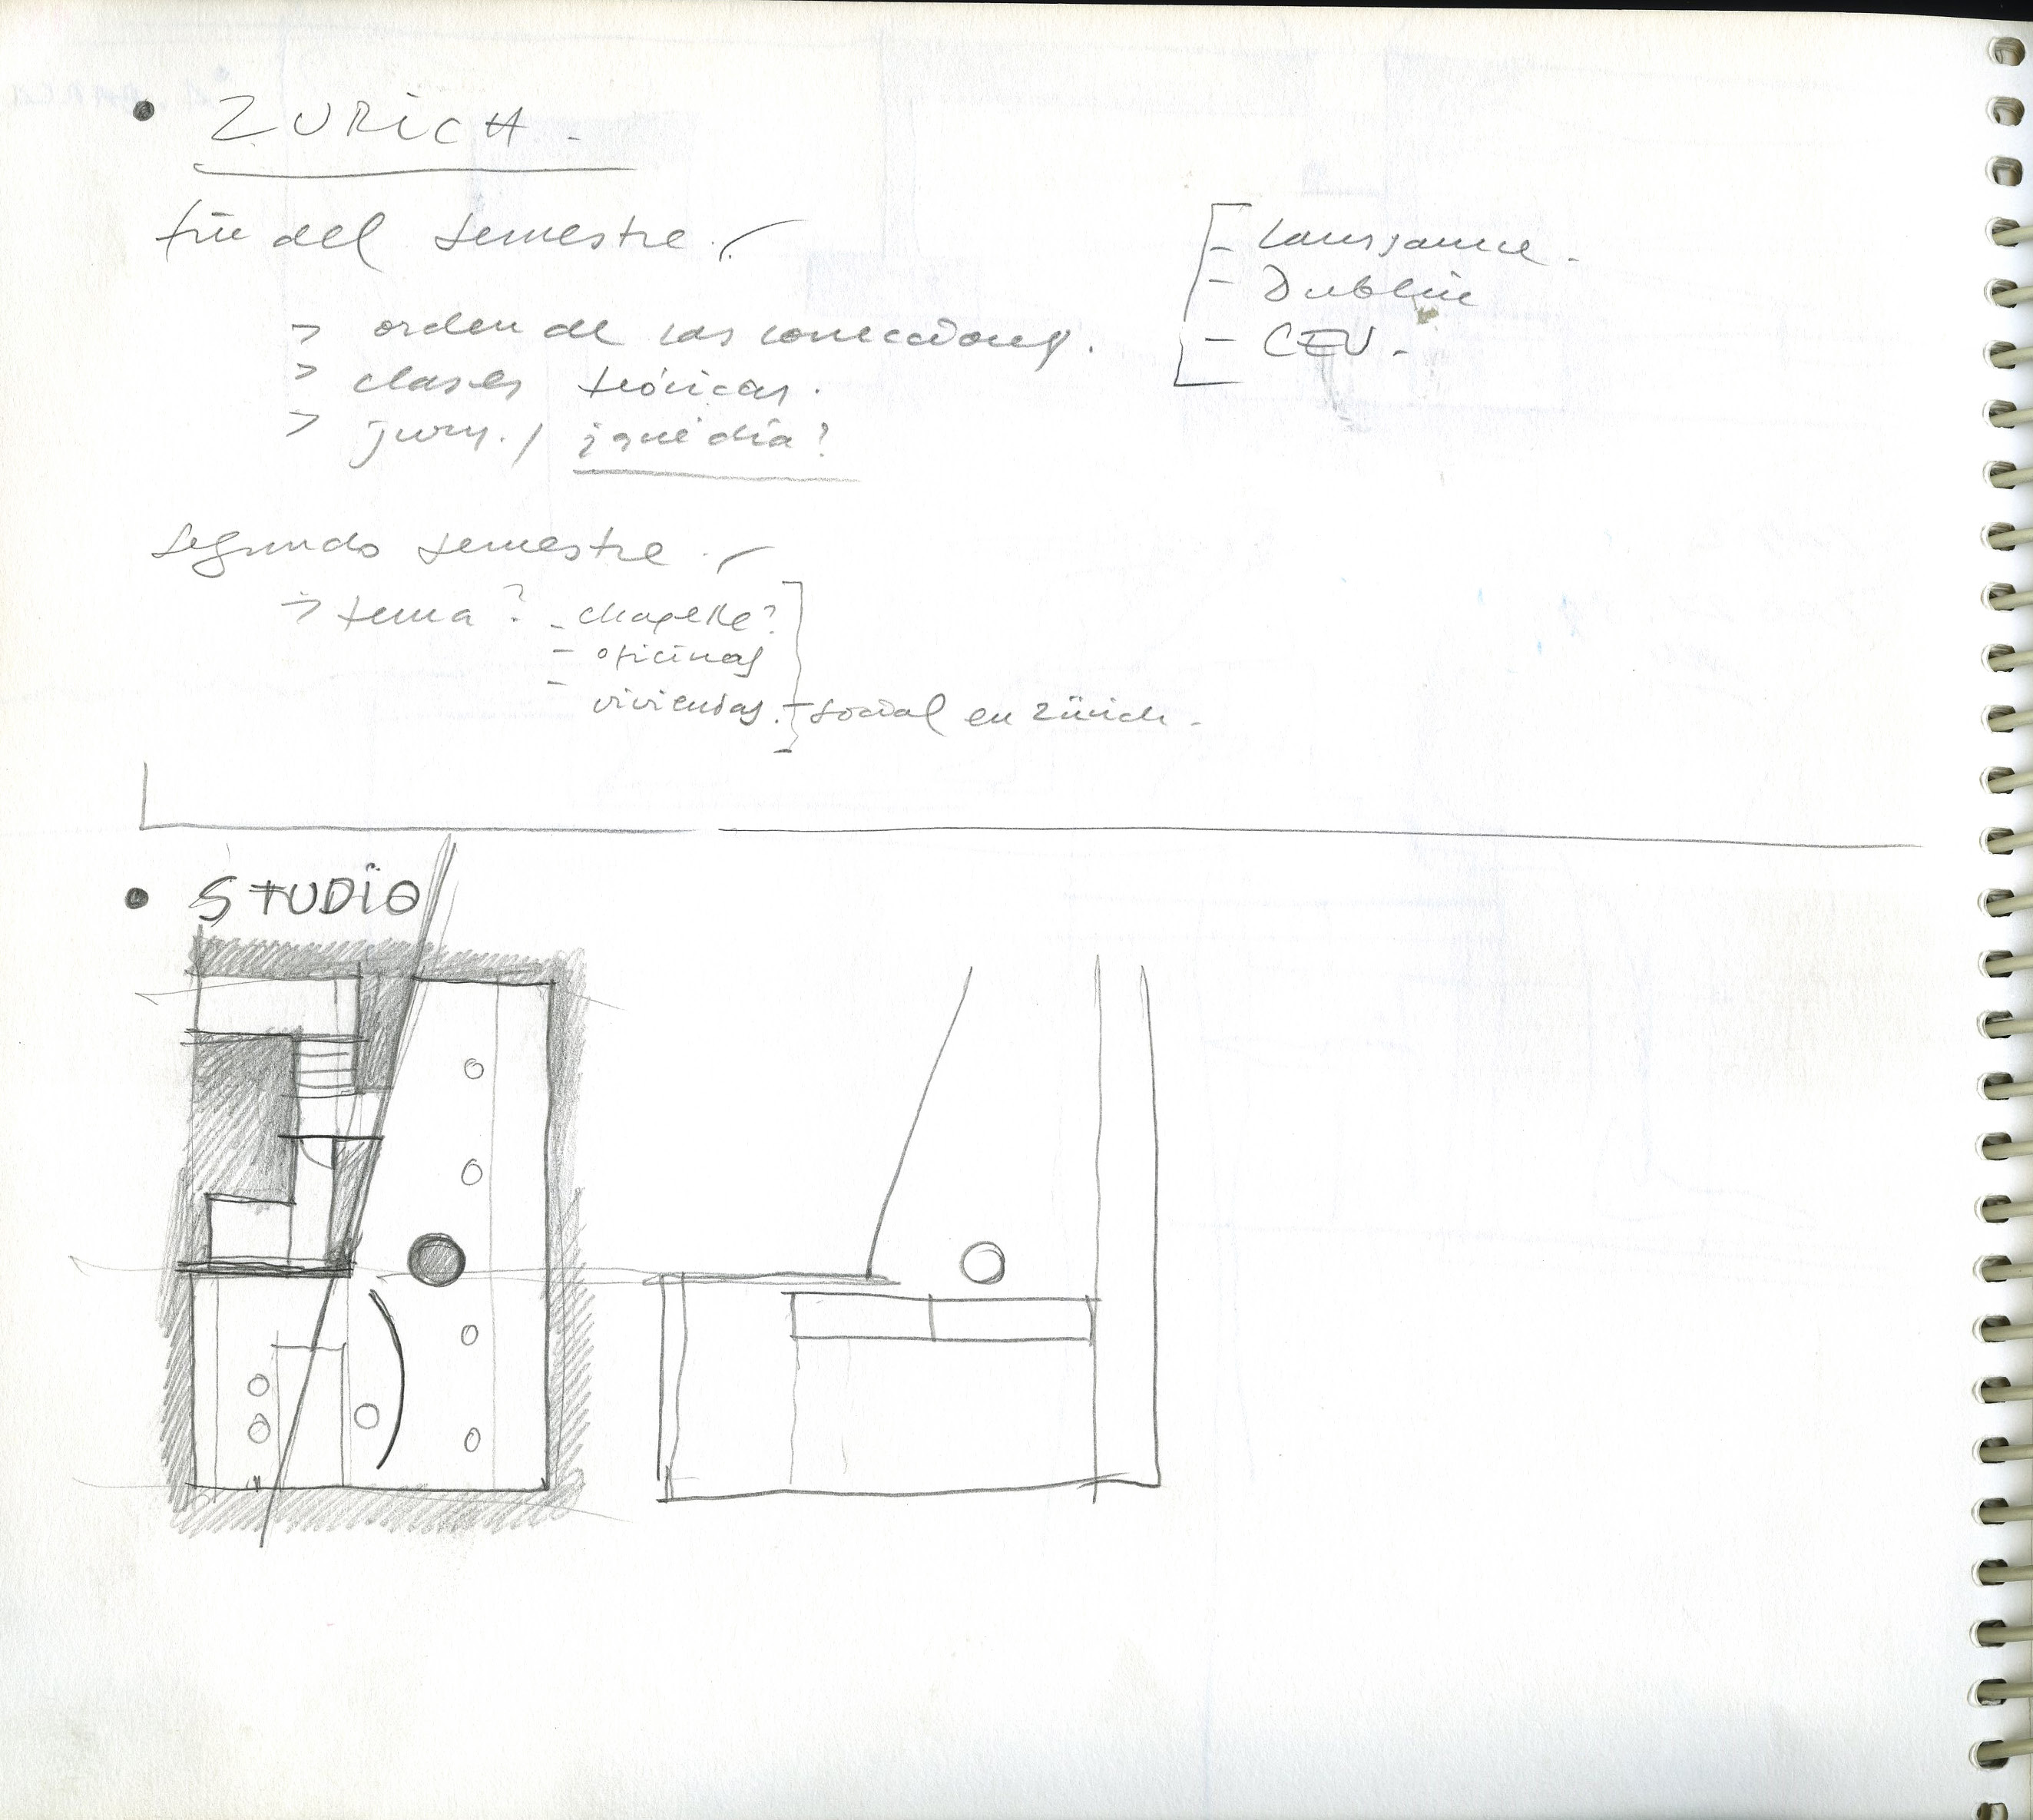 • ZURiCH -
fin del semestre.
> orden de las correcciones.
> clases teóricas.
> jury. / ¿qué día?
[ - Laussanne.
- Dublin
- CEU.
Segundo semestre.
> tema? - chapelle?
- oficinas
- viviendas. social en Zürich.
• STUDiO